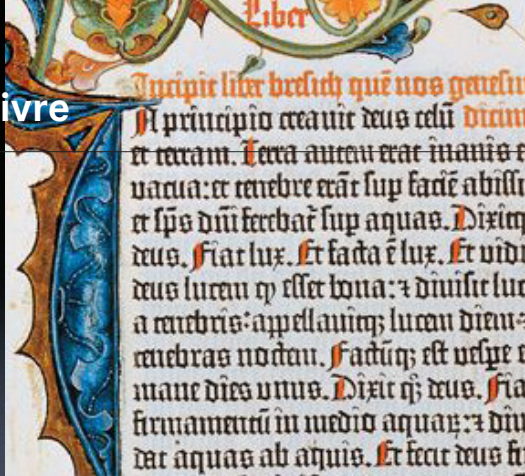 Liber
Incipit liber bresich quē nos genesi
ivre
N principio creauit deus celū dicim
et terram. Terra autem erat inanis e
vacua: et tenebre erāt sup faciē abissi
et sp̄s dn̄i ferebat̄ sup aquas. Dixitq
deus. Fiat lux. Et facta ē lux. Et vidi
deus lucem ꝙ esset bona: ⁊ diuisit luc
a tenebris: appellauitqꝫ lucem diem ⁊
tenebras noctem. Factūqꝫ est vespe e
mane dies vnus. Dixit qꝫ deus. Fia
firmamentū in medio aquaꝝ: ⁊ diui
dat aquas ab aquis. Et fecit deus fi